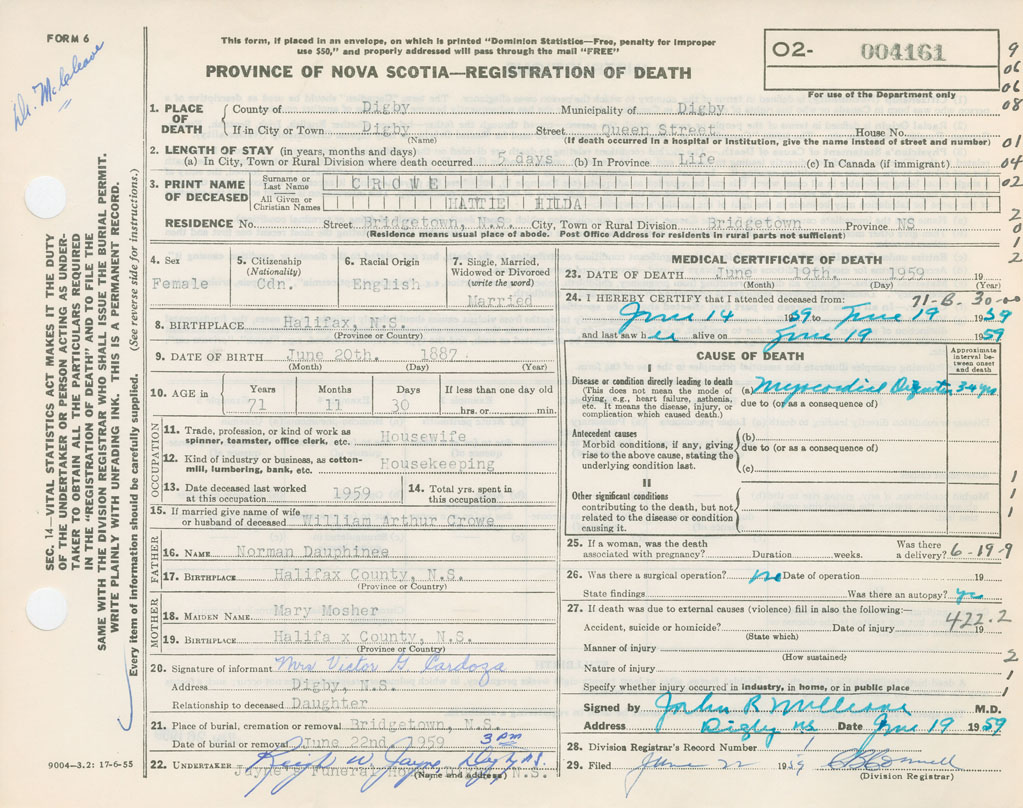 FORM 6
This form, if placed in an envelope, on which is printed "Dominion Statistics—Free, penalty for improper
use $50," and properly addressed will pass through the mail "FREE"
PROVINCE OF NOVA SCOTIA—REGISTRATION OF DEATH
02- 004161
For use of the Department only
9
06
06
08
01
04
02
2
0
1
2
SEC. 14—VITAL STATISTICS ACT MAKES IT THE DUTY
OF THE UNDERTAKER OR PERSON ACTING AS UNDER-
TAKER TO OBTAIN ALL THE PARTICULARS REQUIRED
IN THE "REGISTRATION OF DEATH" AND TO FILE THE
SAME WITH THE DIVISION REGISTRAR WHO SHALL ISSUE THE BURIAL PERMIT.
WRITE PLAINLY WITH UNFADING INK. THIS IS A PERMANENT RECORD.
Every item of information should be carefully supplied. (See reverse side for instructions.)
1. PLACE OF DEATH
County of Digby Municipality of Digby
If in City or Town Digby Street Queen Street House No.
(Name) (If death occurred in a hospital or institution, give the name instead of street and number)
2. LENGTH OF STAY (in years, months and days)
(a) In City, Town or Rural Division where death occurred 5 days (b) In Province Life (c) In Canada (if immigrant)
3. PRINT NAME OF DECEASED
Surname or Last Name CROWE
All Given or Christian Names HATTIE HILDA
RESIDENCE No. Street Bridgetown, N.S. City, Town or Rural Division Bridgetown Province NS
(Residence means usual place of abode. Post Office Address for residents in rural parts not sufficient)
4. Sex
Female
5. Citizenship
(Nationality)
Cdn.
6. Racial Origin
English
7. Single, Married,
Widowed or Divorced
(write the word)
Married
8. BIRTHPLACE Halifax, N.S.
(Province or Country)
9. DATE OF BIRTH June 20th. 1887
(Month) (Day) (Year)
10. AGE in
Years Months Days If less than one day old
71 11 30 hrs. or min.
OCCUPATION
11. Trade, profession, or kind of work as
spinner, teamster, office clerk, etc. Housewife
12. Kind of industry or business, as cotton-
mill, lumbering, bank, etc. Housekeeping
13. Date deceased last worked
at this occupation 1959
14. Total yrs. spent in
this occupation
15. If married give name of wife
or husband of deceased William Arthur Crowe
FATHER
16. NAME Norman Dauphinee
17. BIRTHPLACE Halifax County, N.S.
(Province or Country)
MOTHER
18. MAIDEN NAME Mary Mosher
19. BIRTHPLACE Halifa x County, N.S.
(Province or Country)
20. Signature of informant Mrs Victor G Cardoza
Address Digby, N.S.
Relationship to deceased Daughter
21. Place of burial, cremation or removal Bridgetown, N.S.
Date of burial or removal June 22nd, 1959 3 pm
22. UNDERTAKER W Jayne, Digby N.S.
Jayne's Funeral Ho N.S.
(Name and address)
9004—3.2: 17-6-55
MEDICAL CERTIFICATE OF DEATH
23. DATE OF DEATH June 19th. 1959 19
(Month) (Day) (Year)
24. I HEREBY CERTIFY that I attended deceased from: 71-B-30-00
June 14 1959 to June 19 1959
and last saw her alive on June 19 1959
CAUSE OF DEATH
Approximate
interval be-
tween onset
and death
I
Disease or condition directly leading to death
(This does not mean the mode of
dying, e.g., heart failure, asthenia,
etc. It means the disease, injury, or
complication which caused death.)
(a) Myocardial 3-4 yrs
due to (or as a consequence of)
Antecedent causes
Morbid conditions, if any, giving
rise to the above cause, stating the
underlying condition last.
(b)
due to (or as a consequence of)
(c)
1
II
Other significant conditions
contributing to the death, but not
related to the disease or condition
causing it.
1
1
25. If a woman, was the death
associated with pregnancy? Duration weeks.
Was there
a delivery? 6-19-9
26. Was there a surgical operation? no Date of operation 19
State findings Was there an autopsy? yes
27. If death was due to external causes (violence) fill in also the following:—
Accident, suicide or homicide? Date of injury 19 422.2
(State which)
Manner of injury 2
(How sustained)
Nature of injury 1
Specify whether injury occurred in industry, in home, or in public place 1
Signed by John R M.D.
Address Digby NS Date June 19 1959
28. Division Registrar's Record Number 1
29. Filed June 22 1959
(Division Registrar)